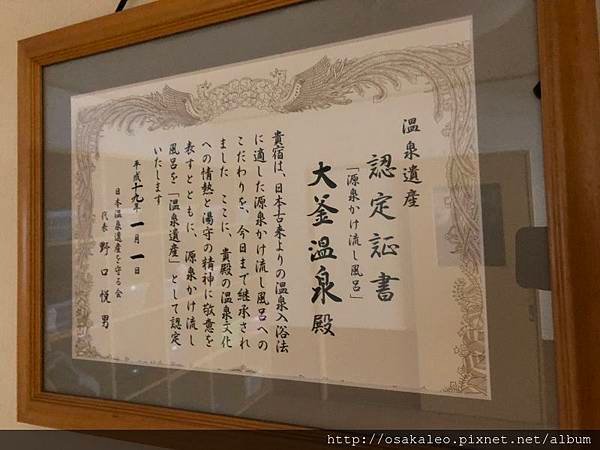 温泉遺産
認定証書
「源泉かけ流し風呂」
大釜温泉殿
貴宿は、日本古来よりの温泉入浴法
に適した源泉かけ流し風呂への
こだわりを、今日まで継承され
ました ここに、貴殿の温泉文化
への情熱と湯守の精神に敬意を
表すとともに、源泉かけ流し
風呂を「温泉遺産」として認定
いたします
平成十九年 一月一日
日本温泉遺産を守る会
代表 野口悦男
http://osakaleo.pixnet.net/album